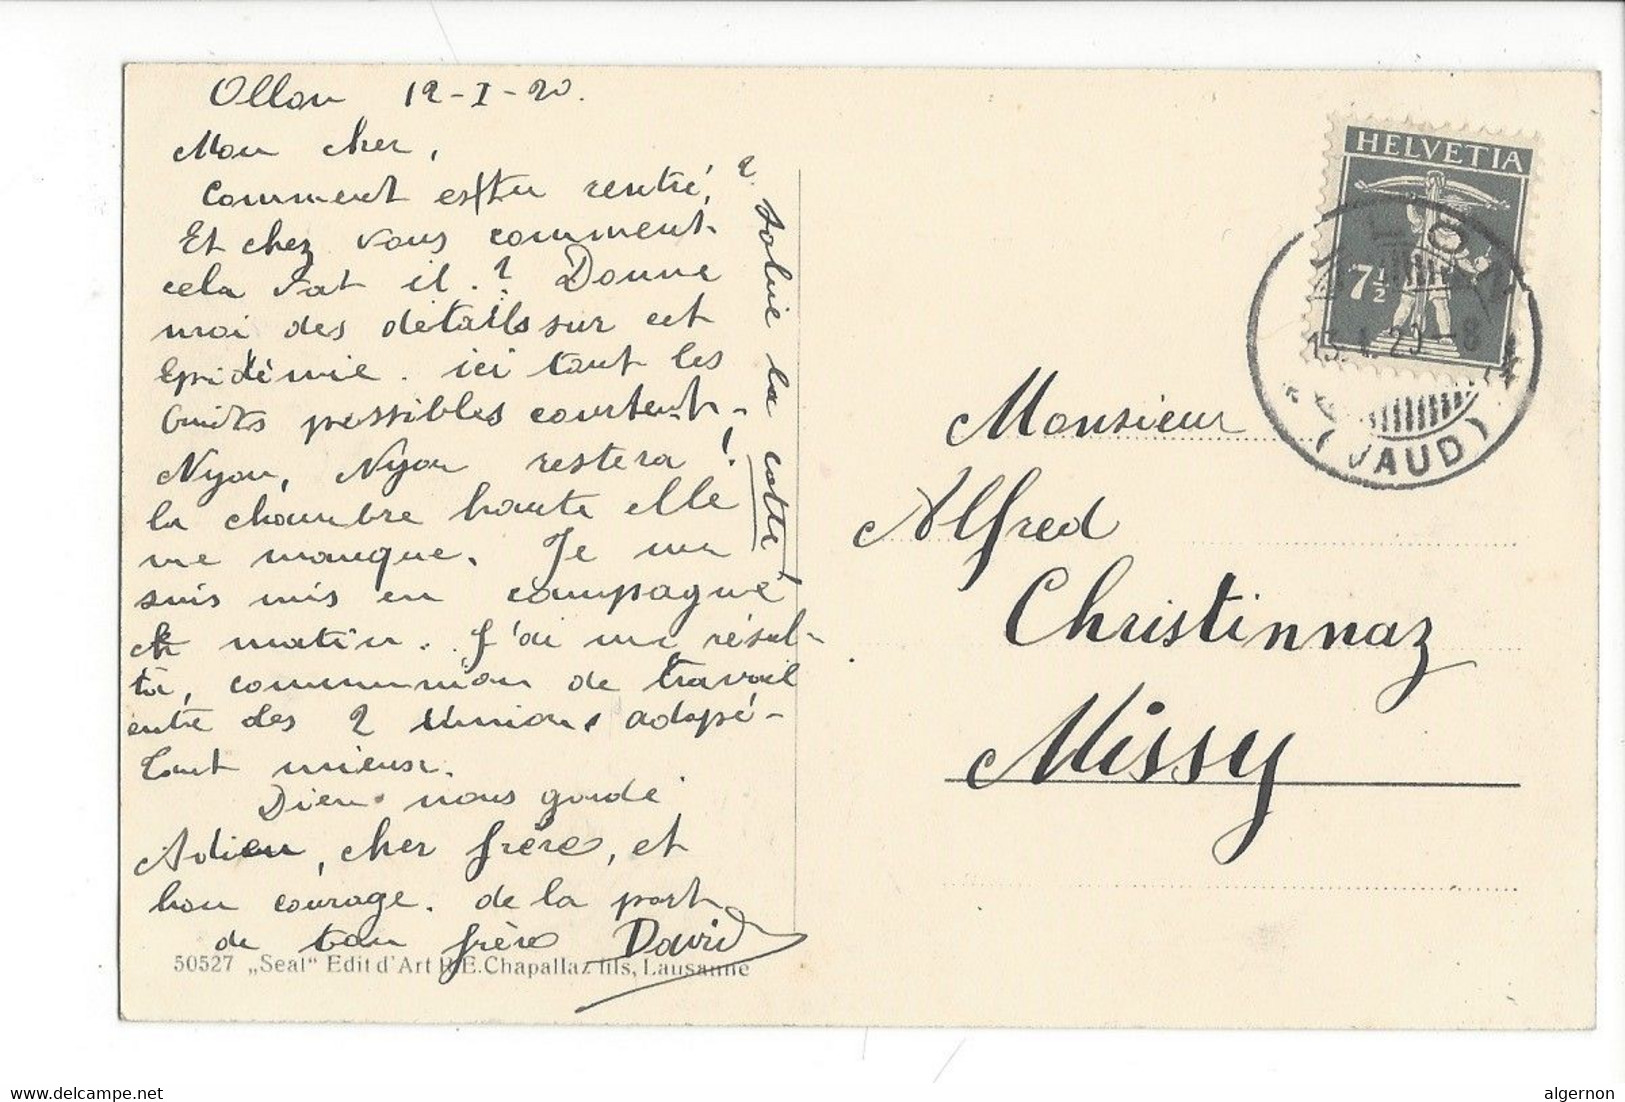 Ollon 12-I-20.
Mon cher,
Comment es-tu rentré, ?
Et chez vous comment
cela vat il.? Donne
moi des détails sur cet
Epidémie. ici tout les
bruits possibles courtent.
Nyon, Nyon restera!
la chambre haute elle
me manque. Je me
suis mis en campagne
ce matin. J'ai un résul-
tat, communion de travail
entre les 2 Unions,
tout mieux.
Dieu nous garde
Adieu, cher frère, et
bon courage. de la part
de ton frère David
Salue la cotte!
50527 „Seal“ Edit d'Art H.E. Chapallaz fils, Lausanne
HELVETIA
7½
OLLON
13.I.20-8
(VAUD)
Monsieur
Alfred
Christinnaz
Missy
delcampe.net
algernon